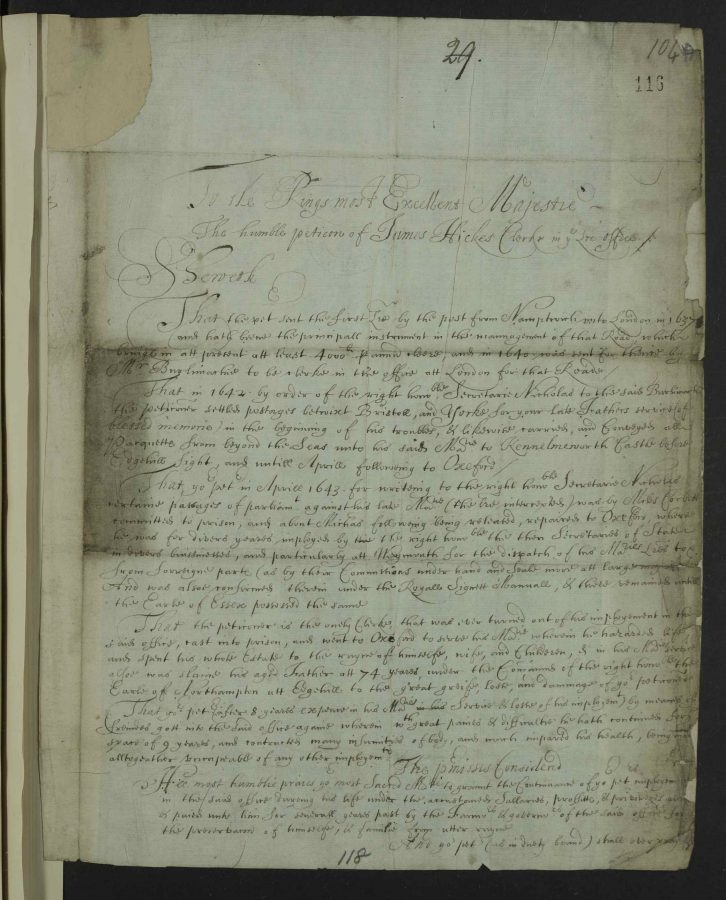 29.
104
116
To the Kings most Excellent Majestie
The humble peticon of James Hickes Clerke in yᵉ Lre office
Sheweth
That the pet sent the first Lre by the post from Namptwich unto London in 1637
and hath beene the principall instrument in the management of that Road, which
brings in att present att least 4000ˡ P annu cleere, and in 1640 was sent for thence by
Mʳ Burlimachie to be clerke in the office att London for that Roade
That in 1642 by order of the right honoᵇˡᵉ Secretarie Nicholas to the said Burlimach
the petitioner settled postages betwixt Bristoll, and Yorke for your late Fathers service (of
blessed memorie) in the beginning of his troubles, & likewise carried, and Conveyed all
Pacquetts from beyond the Seas unto his said Maᵗⁱᵉ to Kennelmeworth Castle before
Edgehill fight, and untill Aprill following to Oxeford
That yoʳ petʳ in Aprill 1643 for writeing to the right honoᵇˡᵉ Secretarie Nicholas
certaine passages of parliamᵗ against his late Maᵗⁱᵉ (the lre intercepted) was by Miles Corbet
committed to prison, and about Michas following being released, repaired to Oxeford where
he was for divers yeares imployed by the right honoᵇˡᵉ the then Secretaries of State
in divers businesses, and particularly att Weymouth for the dispatch of his Maᵗⁱᵉˢ Lres to &
from forreigne parts (as by their Commissions under hand and seale more att large
And was alsoe confirmed therein under the Royall Signett Mannuall, & there remained untill
the Earle of Essex possessed the same
That the petitioner is the onely Clerke, that was ever turned out of his imployment in the
said office, cast into prison, and went to Oxeford to serve his Maᵗⁱᵉ wherein he hazarded his life
and spent his whole Estate to the ruyne of himselfe, wife, and Children, & in his Maᵗⁱᵉˢ service
alsoe was slaine his aged Father att 74 yeares under the Command of the right honoᵇˡᵉ the
Earle of Northampton att Edgehill to the great greife, losse, and dammage of yoʳ petitioner
That yoʳ petʳ (after 8 yeares expence in his Maᵗⁱᵉˢ Service & losse of his imploymᵗ) by meanes of
freindes gott into the said office againe wherein wᵗʰ great paines & difficultie he hath continued for
space of 9 yeares, and contracted many infirmities of body, and much impaired his health, being now
alltogeather uncapeable of any other imploymᵗ
The pmisses Considered
Hee most humblie praies yoʳ most Sacred Maᵗⁱᵉ to graunt the Continuance of yoʳ pet imploymᵗ
in the said office dureing his life under the accustomed Sallaries, proffitts, & priviledges
& paied unto him for severall yeares past by the Farmoʳˢ & governoʳˢ of the said office for
the preservacon of himselfe, & familie from utter ruyne
And yoʳ petʳ (as in duety bound) shall ever pray &c
118